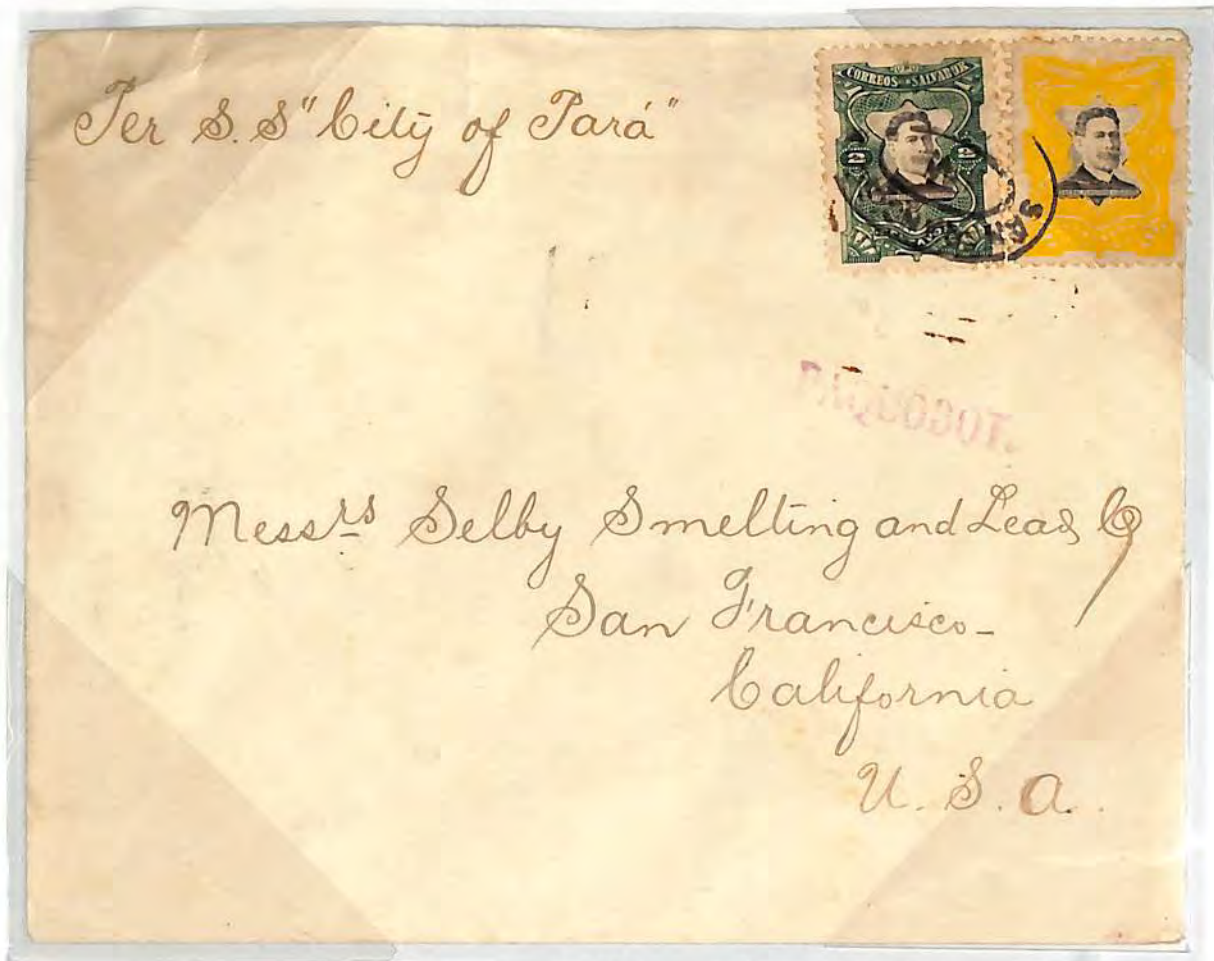 Per S.S "City of Pará"
CORREOS SALVADOR
2 2
SAN
Messrs Selby Smelting and Lead Co
San Francisco-
California
U. S. A.